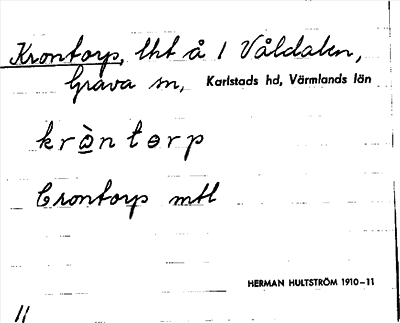 Krontorp, lht å 1 Våldalen,
Grava sn, Karlstads hd, Värmlands län
kràntorp
Crontorp mtl
HERMAN HULTSTRÖM 1910–11
11